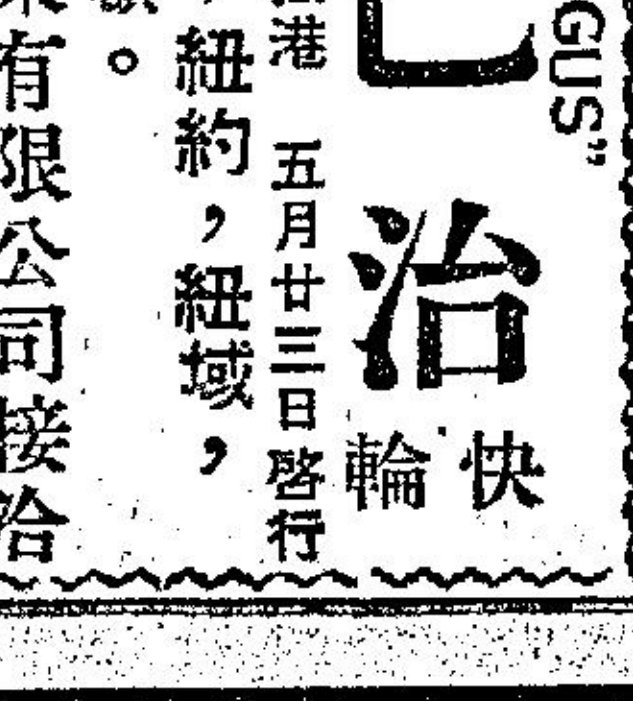 GUS”
巴治
快輪
港 五月廿三日啓行
，紐約，紐域，
。
有限公司接洽